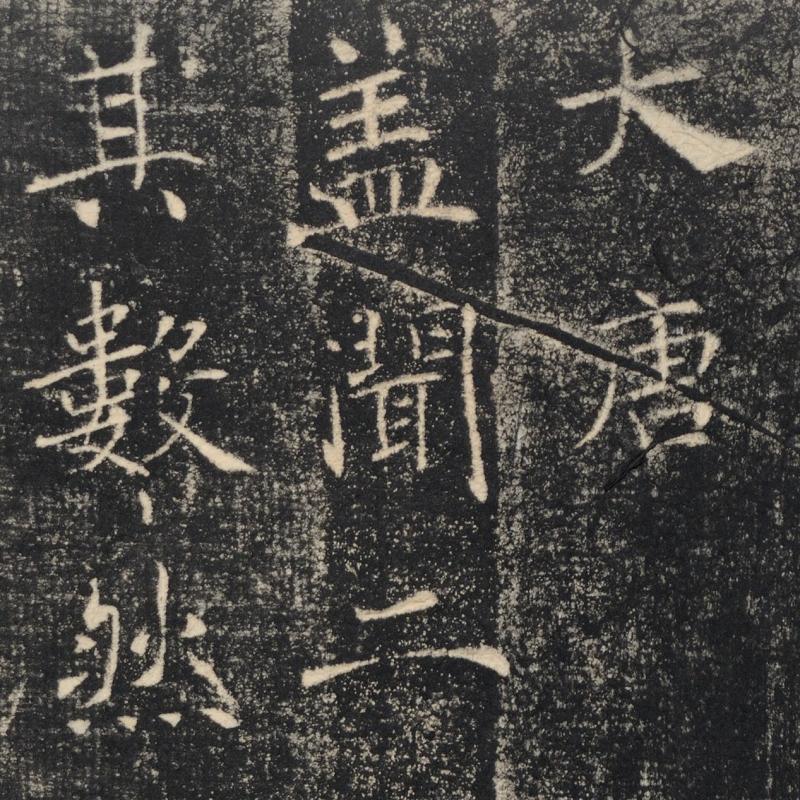 大唐
盖聞二
其數然